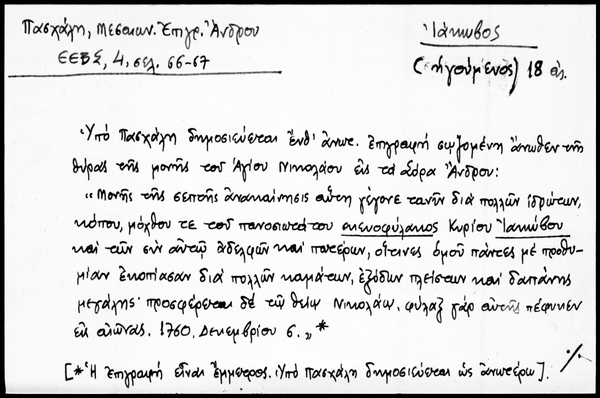 Πασχάλη, Μεσαιων. Ἐπιγρ. Ἄνδρου
ΕΕΒΣ, 4, σελ. 66-67
Ἰάκωβος
(ἡγούμενος) 18 αἰ.
Ὑπό Πασχάλη δημοσιεύεται ἔνθ' ἀνωτ. ἐπιγραφή σῳζομένη ἄνωθεν τῆς
θύρας τῆς μονῆς τοῦ Ἁγίου Νικολάου εἰς τά Σόρα Ἄνδρου:
"Μονῆς τῆς σεπτῆς ἀνακαίνησις αὕτη γέγονε τανῦν διά πολλῶν ἱδρώτων,
κόπου, μόχθου τε τοῦ πανοσιωτάτου σκευοφύλακος Κυρίου Ἰακώβου
καί τῶν σύν αὐτῷ ἀδελφῶν καί πατέρων, οἵτινες ὁμοῦ πάντες μέ προθυ-
μίαν ἐκοπίασαν διά πολλῶν καμάτων, ἐξόδων πλείστων καί δαπάνης
μεγάλης· προσφέρεται δέ τῷ θείῳ Νικολάῳ. φύλαξ γάρ αὐτῆς πέφυκεν
εἰς αἰῶνας. 1760. Δεκεμβρίου 6."*
[*Ἡ ἐπιγραφή εἶναι ἔμμετρος. Ὑπό Πασχάλη δημοσιεύεται ὡς ἀνωτέρω].
·/·